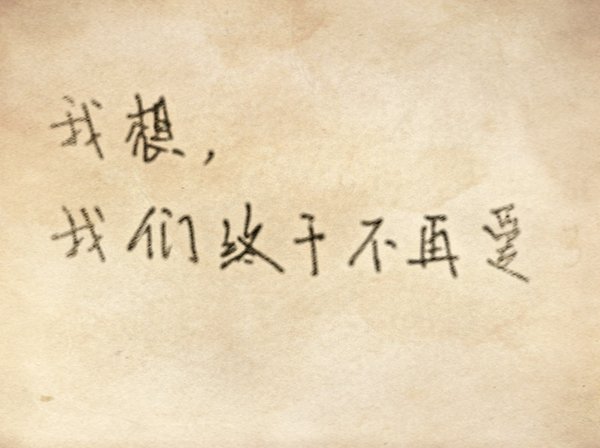 我想，
我们终于不再爱